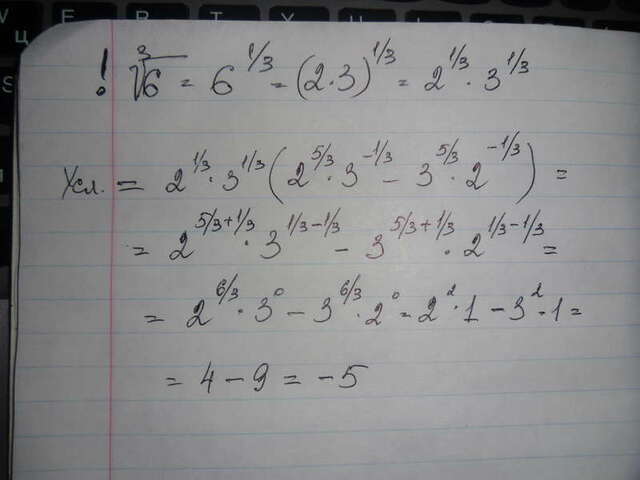 ! ∛6 = 6^{1/3} = (2·3)^{1/3} = 2^{1/3} · 3^{1/3}
Усл. = 2^{1/3} · 3^{1/3} (2^{5/3} · 3^{-1/3} - 3^{5/3} · 2^{-1/3}) =
= 2^{5/3+1/3} · 3^{1/3-1/3} - 3^{5/3+1/3} · 2^{1/3-1/3} =
= 2^{6/3} · 3^0 - 3^{6/3} · 2^0 = 2^2 · 1 - 3^2 · 1 =
= 4 - 9 = -5